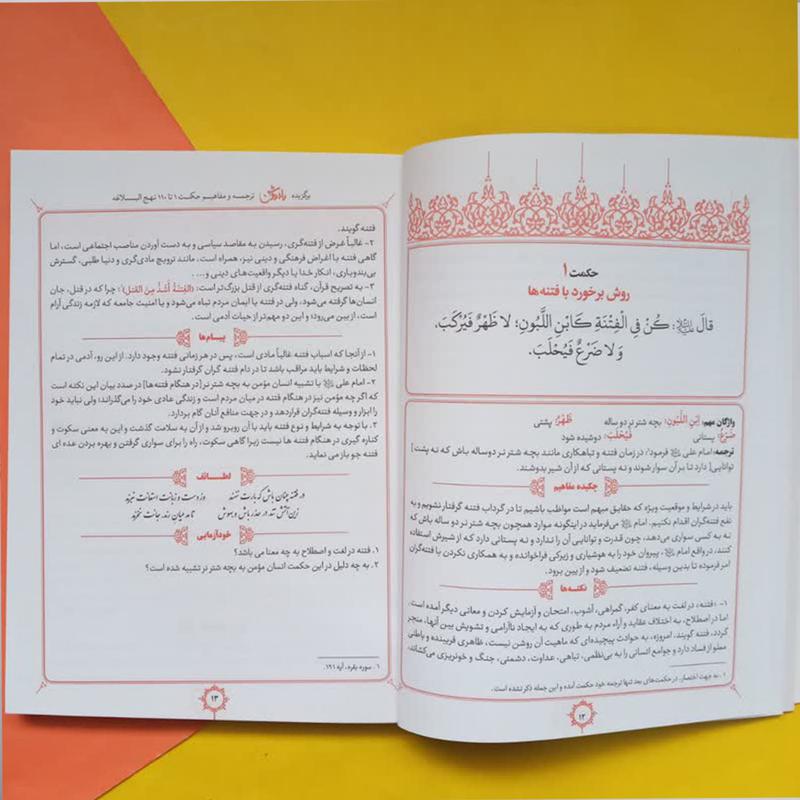 حکمت ۱
روش برخورد با فتنه‌ها
قالَ علیه‌السلام: کُنْ فِی الْفِتْنَةِ کَابْنِ اللَّبُونِ؛ لا ظَهْرٌ فَیُرْکَبَ،
وَ لا ضَرْعٌ فَیُحْلَبَ.
واژگان مهم: اِبْنِ اللَّبُونِ: بچه شتر نر دو ساله ظَهْرٌ: پشتی
ضَرْعٌ: پستانی فَیُحْلَبَ: دوشیده شود
ترجمه: امام علی فرمود: در زمان فتنه و تباهکاری مانند بچه شتر نر دوساله باش که نه پشت [
توانایی] دارد تا بر آن سوار شوند و نه پستانی که از آن شیر بدوشند.
چکیده مفاهیم
باید در شرایط و موقعیت ویژه که حقایق مبهم است مواظب باشیم تا در گرداب فتنه گرفتار نشویم و به
نفع فتنه‌گران اقدام نکنیم. امام می‌فرماید در اینگونه موارد همچون بچه شتر نر دو ساله باش که
نه به کسی سواری می‌دهد، چون قدرت و توانایی آن را ندارد و نه پستانی دارد که از شیرش استفاده
کنند، در واقع امام پیروان خود را به هوشیاری و زیرکی فراخوانده و به همکاری نکردن با فتنه‌گران
امر فرموده تا بدین وسیله، فتنه تضعیف شود و از بین برود.
نکته‌ها
۱- «فتنه، در لغت به معنای کفر، گمراهی، آشوب، امتحان و آزمایش کردن و معانی دیگر آمده است.
اما در اصطلاح، به اختلاف عقاید و آراء مردم به طوری که به ایجاد ناآرامی و تشویش بین آنها، منجر
گردد، فتنه گویند. امروزه، به حوادث پیچیده‌ای که ماهیت آن روشن نیست، ظاهری فریبنده و باطنی
مملو از فساد دارد و جوامع انسانی را به بی‌نظمی، تباهی، عداوت، دشمنی، جنگ و خونریزی می‌کشاند،
۱ . به جهت اختصار، در حکمت‌های بعد تنها ترجمه خود حکمت آمده و این جمله ذکر نشده است .
۱۲
برگزیده ترجمه و مفاهیم حکمت ۱ تا ۱۱۰ نهج البـــلاغه
فتنه گویند.
۲- غالباً غرض از فتنه‌گری، رسیدن به مقاصد سیاسی و به دست آوردن مناصب اجتماعی است، اما
گاهی فتنه با اغراض فرهنگی و دینی نیز، همراه است، مانند ترویج مادی‌گری و دنیا طلبی، گسترش
بی‌بندوباری، انکار خدا یا دیگر واقعیت‌های دینی و... .
۳- به تصریح قرآن، گناه فتنه‌گری از قتل بزرگ‌تر است: (الفِتنَةُ أَشَدُّ مِنَ القَتلِ)۱ چرا که در قتل، جان
انسان‌ها گرفته می‌شود، ولی در فتنه یا ایمان مردم تباه می‌شود و یا امنیت جامعه که لازمه زندگی آرام
است، از بین می‌رود؛ و این دو مهم‌تر از حیات آدمی است.
پیـام‌ها
۱- از آنجا که اسباب فتنه غالباً مادی است، پس در هر زمانی فتنه وجود دارد. از این رو، آدمی در تمام
لحظات و شرایط باید مراقب باشد تا در دام فتنه گران گرفتار نشود.
۲- امام علی با تشبیه انسان مؤمن به بچه شتر نر [در هنگام فتنه‌ها] در صدد بیان این نکته است
که اگر چه مؤمن نیز در هنگام فتنه در میان مردم است و زندگی عادی خود را می‌گذراند؛ ولی نباید خود
را ابزار و وسیله فتنه‌گران قراردهد و در جهت منافع آنان گام بردارد.
۳- با توجه به شرایط و نوع فتنه باید با آن روبرو شد و از آن به سلامت گذشت و این به معنی سکوت و
کناره گیری در هنگام فتنه ها نیست زیرا گاهی سکوت، راه را برای سواری گرفتن و بهره بردن عده ای
فتنه جو باز می نماید.
لطــائف
در فتنه چنان باش که بارت ننهند وز دست و زبانت استعانت نبرند
زین آتش تند در حذر باش و بهوش تا مه میان
خودآزمایی
۱. فتنه در لغت و اصطلاح به چه معنا می باشد؟
۲. به چه دلیل در این حکمت انسان مؤمن به بچه شتر نر تشبیه شده است؟
۱ . سوره بقره، آیه ۱۹۱.
۱۳